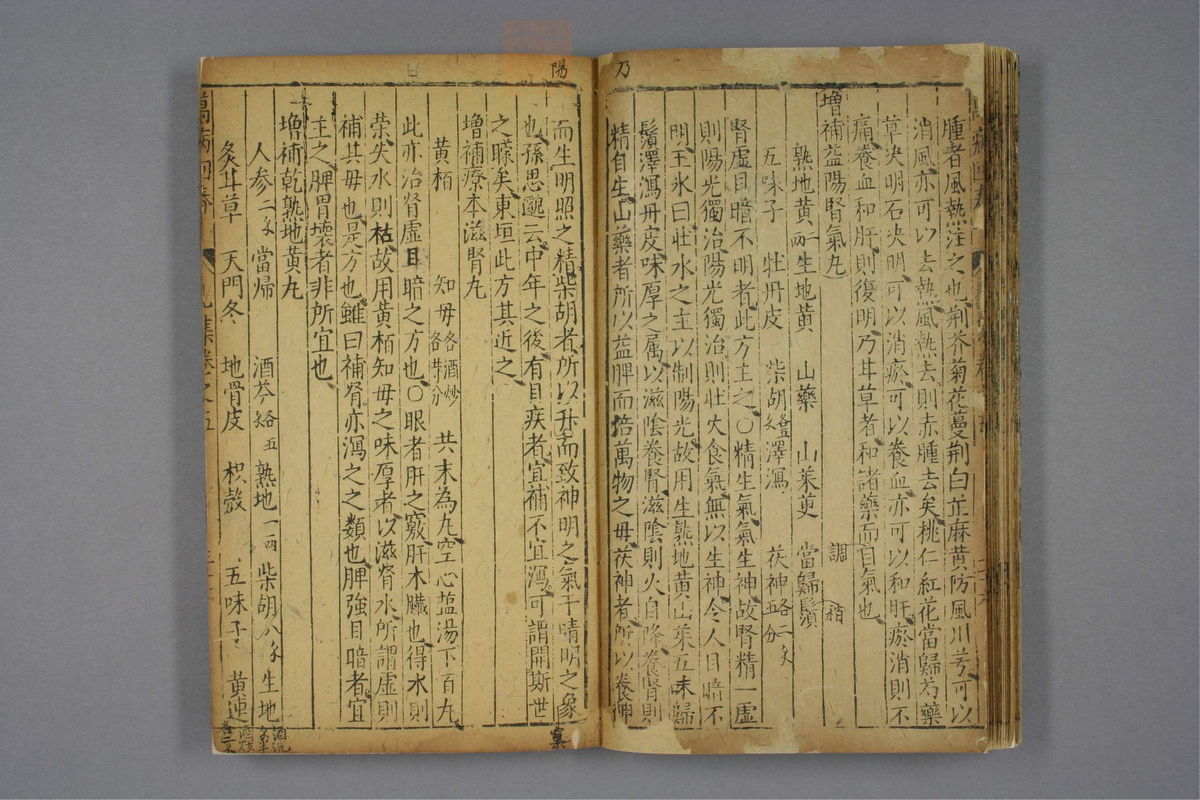 乃
腫者風熱注之也荆芥菊花蔓荆白芷麻黄防風川芎可以
消風亦可以去熱風熱去則赤腫去矣桃仁紅花當歸芍藥
草决明石决明可以消瘀可以養血亦可以和肝瘀消則不
痛養血和肝則復明乃甘草者和諸藥而自氣也
調
增補益陽腎氣丸
稍
熟地黄二两生地黄 山藥 山茱萸 當歸鬚
五味子 牡丹皮 柴胡 澤瀉 茯神各二戈五分
腎虚目暗不明者此方主之○精生氣氣生神故腎精一虚
則陽光獨治陽光獨治則壮火食氣無以生神令人目暗不
明王氷曰壮水之主以制陽光故用生熟地黄山茱五味歸
鬚澤瀉丹皮味厚之属以滋陰養腎滋陰則火自降養腎則
精自生山藥者所以益脾而培萬物之母茯神者所以養神
陽
而生明照之精柴胡者所以升而致神明之氣于睛明之象
也孫思邈云中年之後有目疾者宜補不宜瀉可謂開斯世
之矇矣東垣此方其近之
增補療本滋腎丸
黄栢 知母各酒炒各昔分 共末為丸空心塩湯下百丸
此亦治腎虚目暗之方也○眼者肝之竅肝木臟也得水則
榮失水則枯故用黄栢知母之味厚者以滋腎水所謂虚則
補其母也是方也雖曰補腎亦瀉之之類也脾強目暗者宜
主之脾胃壊者非所宜也
增補乾熟地黄丸
人参二戈 當帰 酒芩各五戈 熟地一两 柴胡八戈 生地
炙甘草 天門冬 地骨皮 枳殻 五味子 黄連
萬病回春